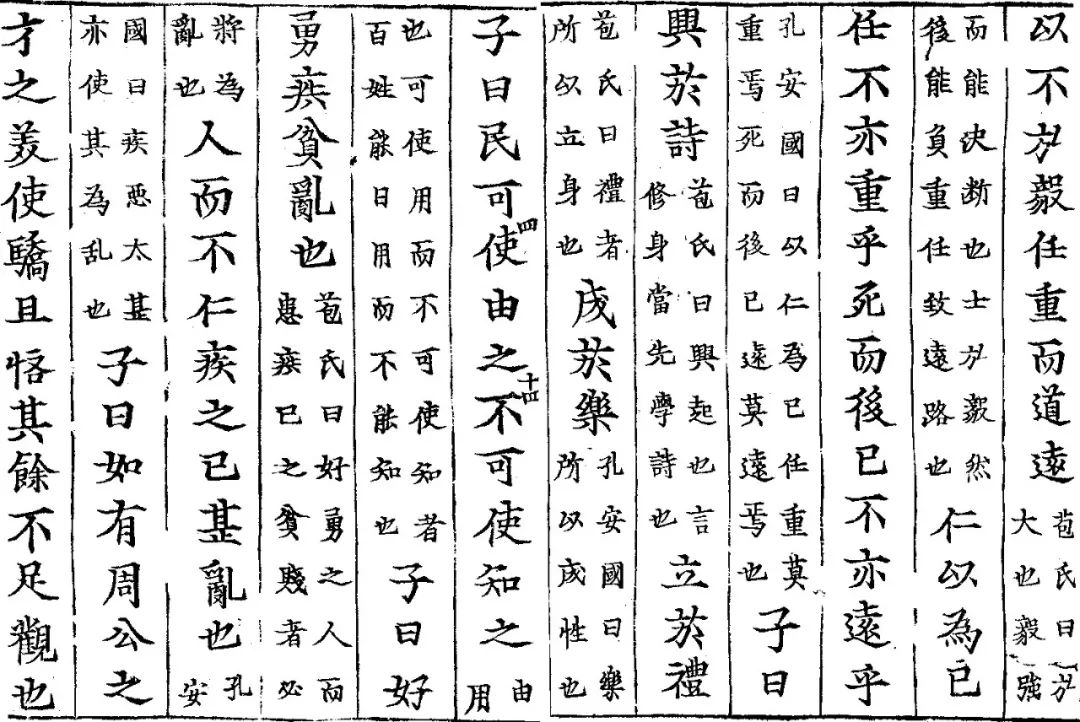 以不弘毅任重而道遠苞氏曰弘大也毅強
而能决断也士弘毅然後能負重任致遠路也仁以為己
任不亦重乎死而後已不亦遠乎
孔安國曰以仁為己任重莫重焉死而後已遠莫遠焉也子曰
興於詩苞氏曰興起也言修身當先學詩也立於禮
苞氏曰禮者所以立身也成於樂孔安國曰樂所以成性也
子曰民可使由之不可使知之由用
四
十四
也可使用而不可使知者百姓能日用而不能知也子曰好
勇疾貧亂也苞氏曰好勇之人而患疾己之貧賤者必
將為亂也人而不仁疾之已甚亂也孔安
國曰疾惡太甚亦使其為乱也子曰如有周公之
才之美使驕且悋其餘不足觀也